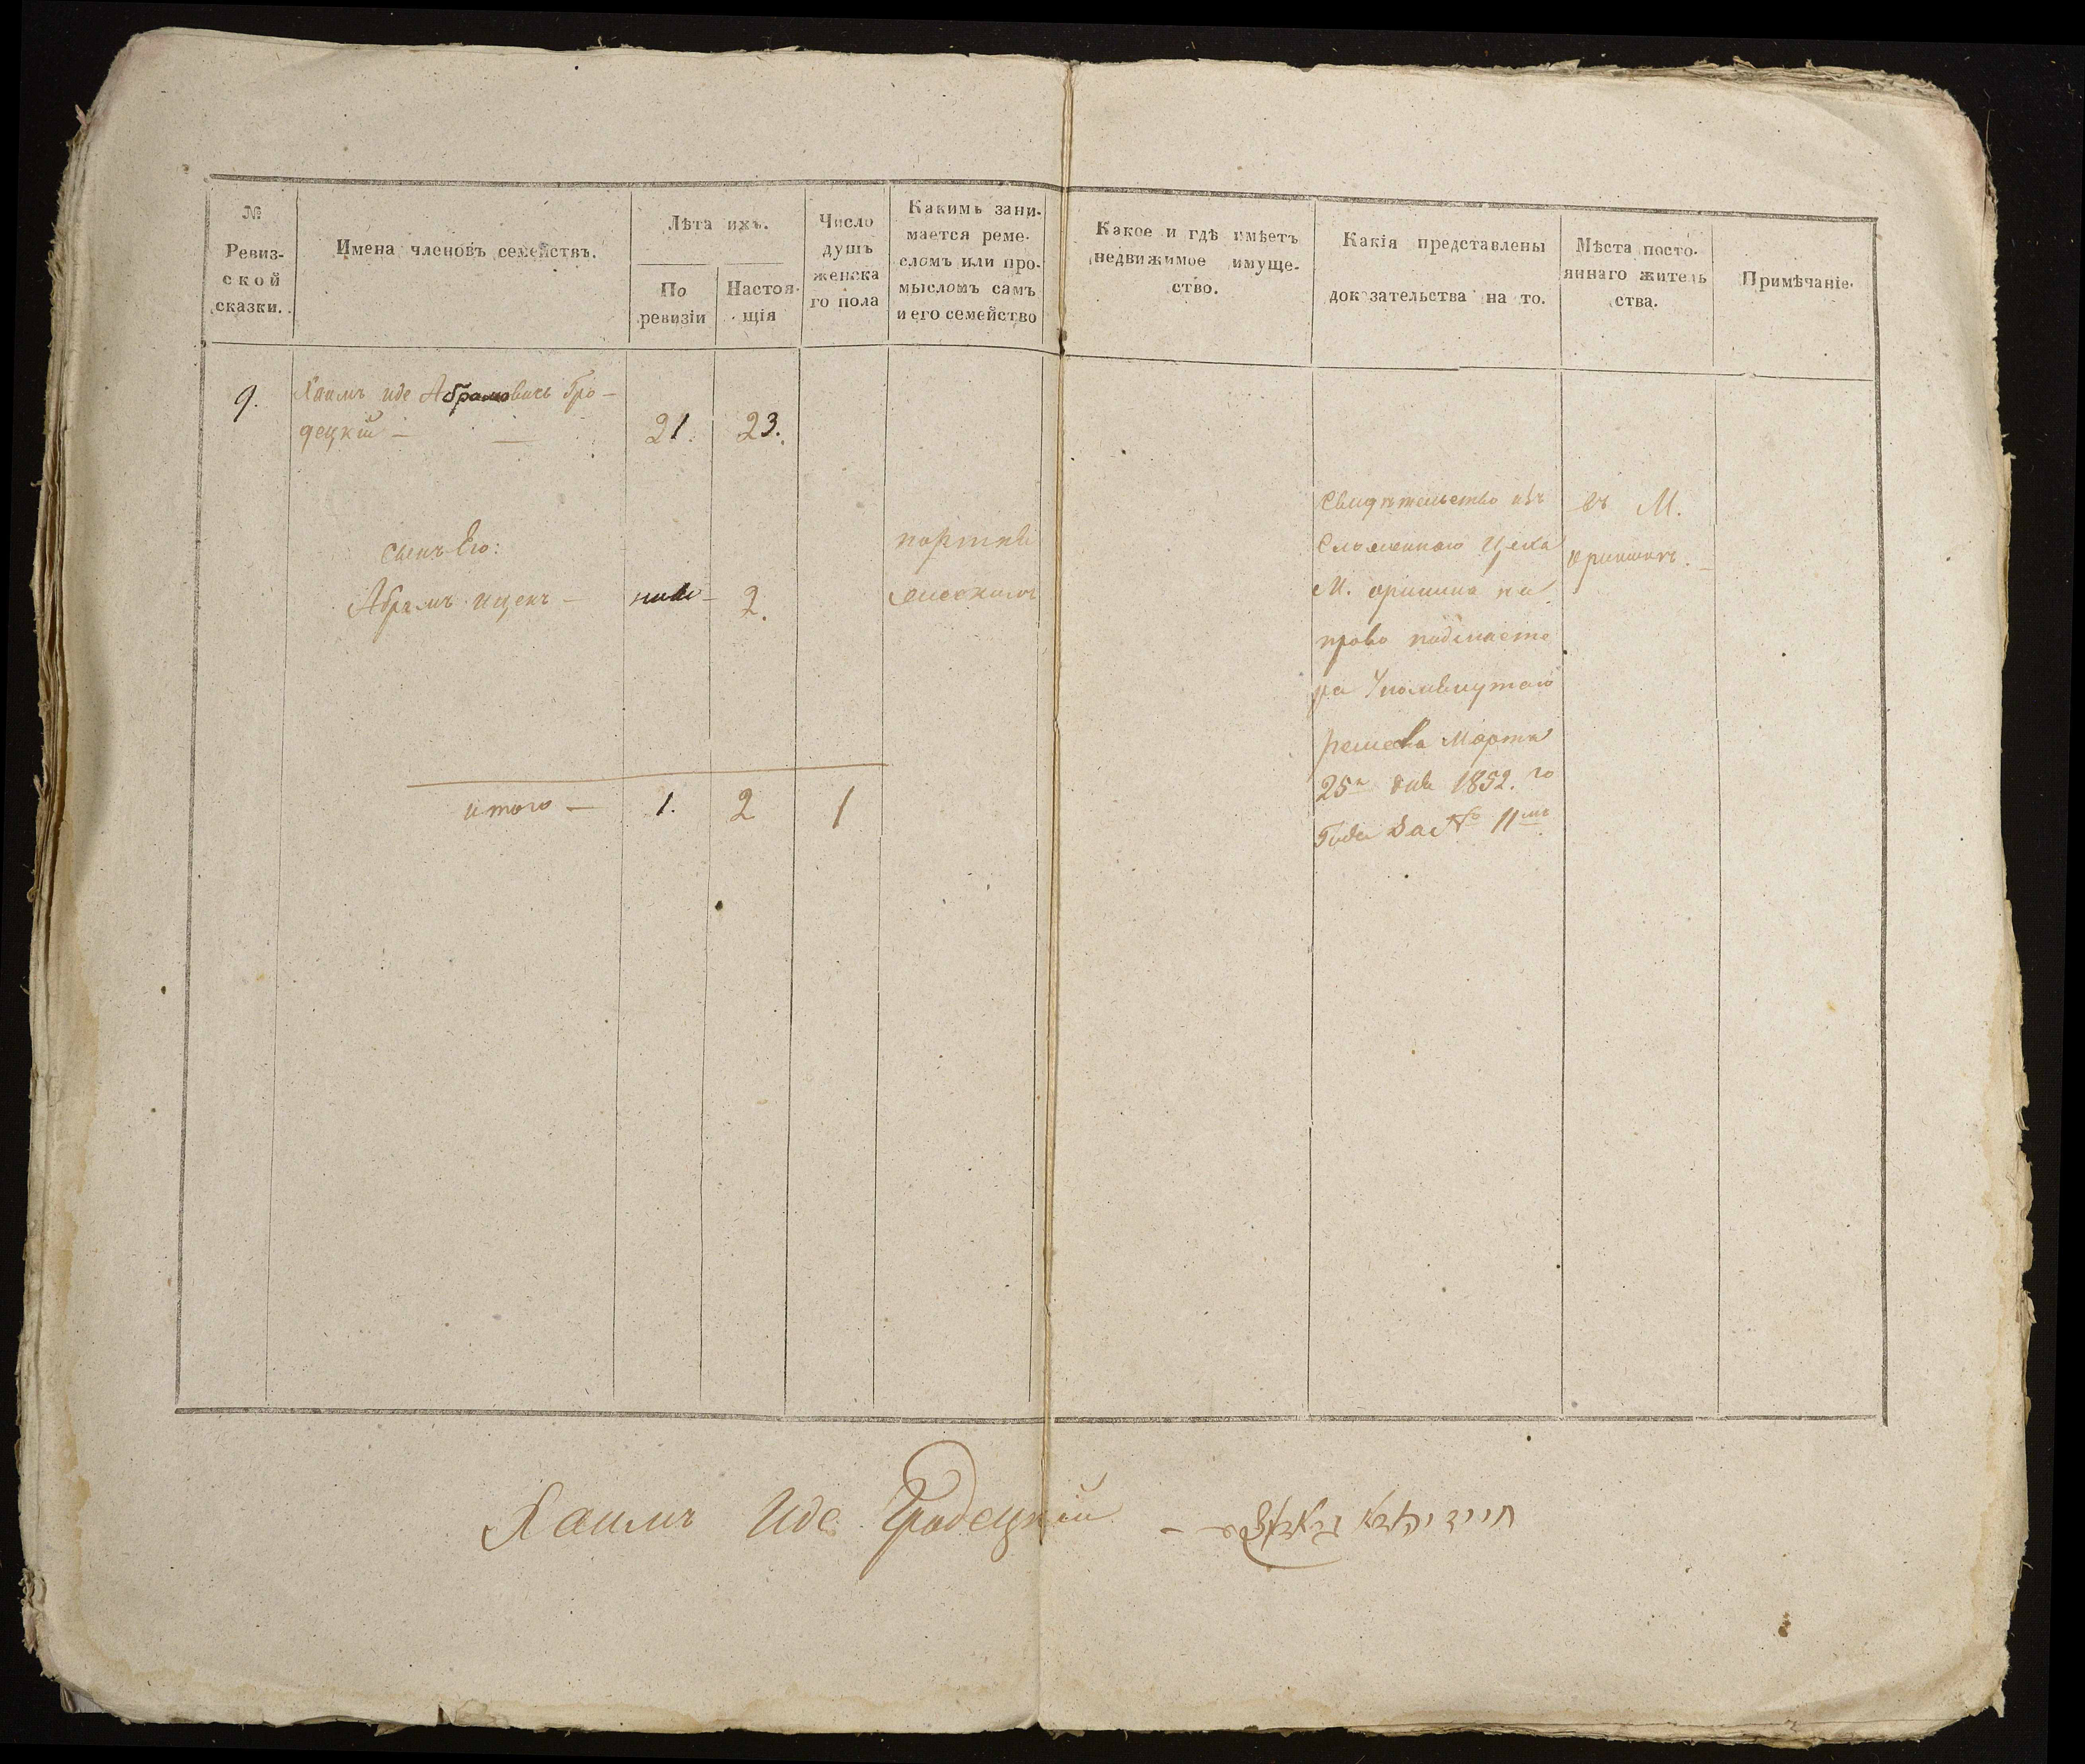 №
Ревиз-
ской
сказки.
Имена членовъ семействъ.
Лѣта ихъ.
По
ревизіи
Настоя-
щія
Число
душъ
женска
го пола
Какимъ зани-
мается реме-
сломъ или про-
мысломъ самъ
и его семейство
Какое и гдѣ имѣетъ
недвижимое имуще-
ство.
Какія представлены
доказательства на то.
Мѣста посто-
яннаго житель
ства.
Примѣчаніе.
9.
Хаимъ иде Абрамовичъ Гро-
децкій —
21. 23.
сынъ Его:
Абрамъ ицекъ —
2.
итого — 1. 2 1
Свидѣтельство изъ
Цеха
М. на
право подмасте
ра
ремесла Марта
25 дня 1852. го
Года За № 11
въ М.
Хаимъ Иде Гродецкій —